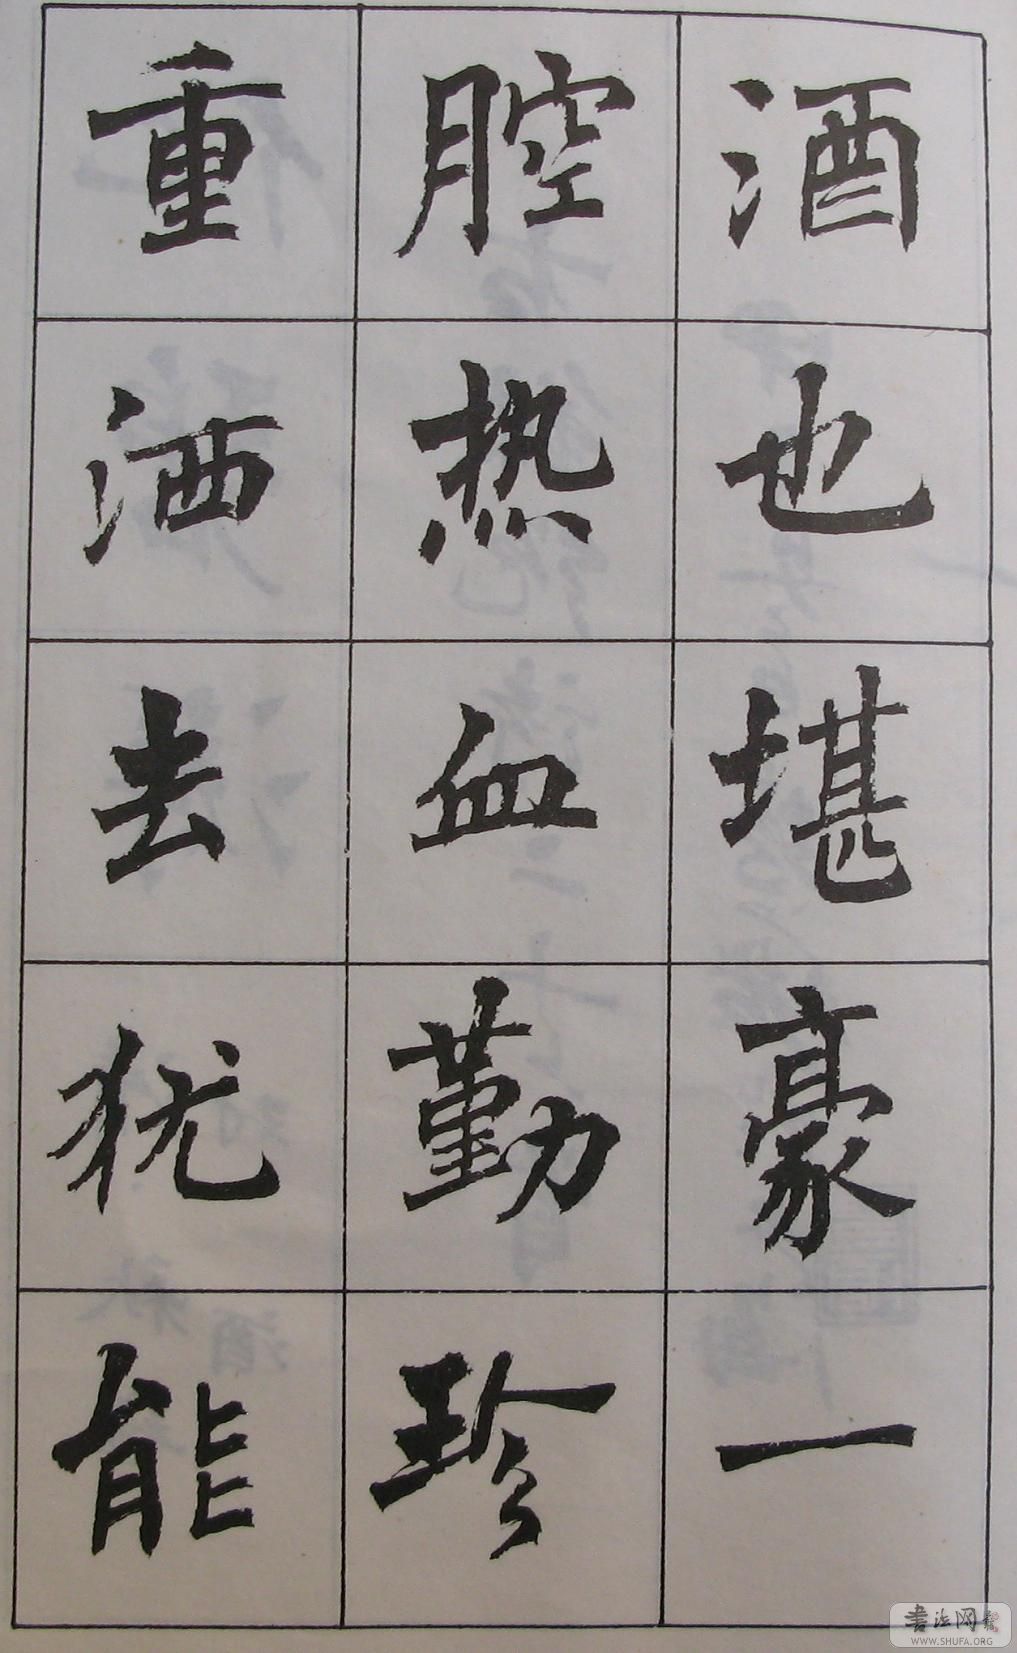 酒也堪豪一
腔热血勤珍
重洒去犹能
书法网
WWW.SHUFA.ORG